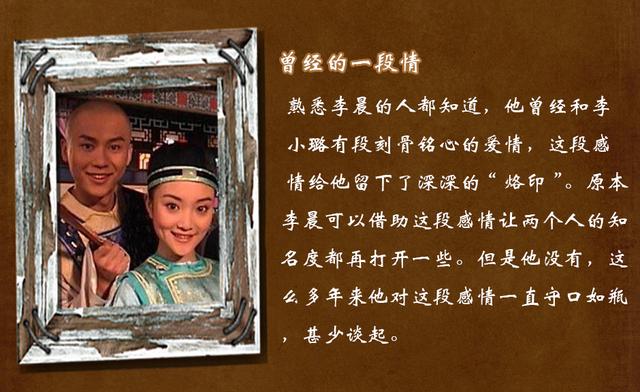 曾经的一段情
熟悉李晨的人都知道，他曾经和李
小璐有段刻骨铭心的爱情，这段感
情给他留下了深深的“烙印”。原本
李晨可以借助这段感情让两个人的知
名度都再打开一些。但是他没有，这
么多年来他对这段感情一直守口如瓶
，甚少谈起。